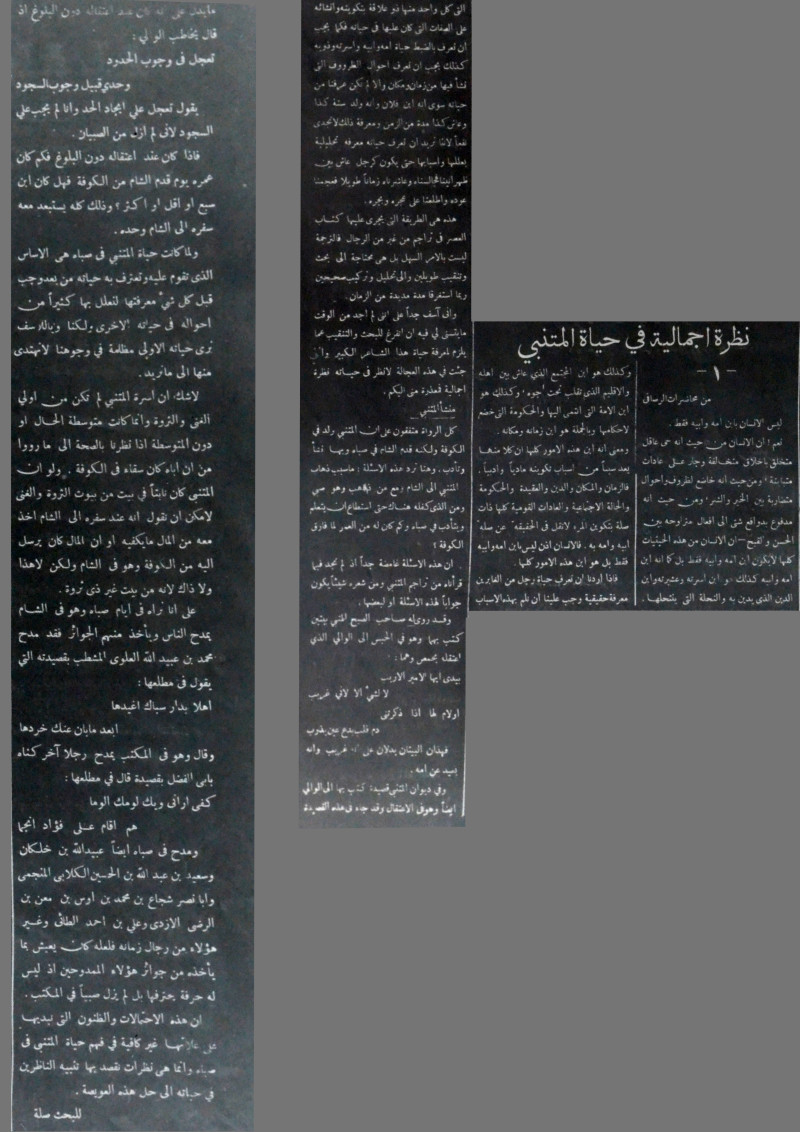 نظرة اجمالية في حياة المتنبي
- ١ -
من محاضرات الرصافي
ليس الانسان بابن امه وابيه فقط .
نعم ! ان الانسان من حيث انه حي عاقل
متخلق باخلاق مختلفة وجار على عادات
متباينة ، ومن حيث انه خاضع لظروف واحوال
متضاربة بين الخير والشر ، ومن حيث انه
مدفوع بدوافع شتى الى افعال متراوحه بين
الحسن والقبح — ان الانسان من هذه الحيثيات
كلها لايكون ابن امه وابيه فقط بل كما انه ابن
امه وابيه كذلك هو ابن اسرته وعشيرته وابن
الدين الذي يدين به والنحلة التي ينتحلها .
وكذلك هو ابن المجتمع الذي عاش بين اهله
والاقليم الذي تقلب تحت اجوء ، وكذلك هو
ابن الامة التي انتمى اليها والحكومة التي خضع
لاحكامها وبالجملة هو ابن زمانه ومكانه .
ومعنى انه ابن هذه الامور كلها ان كلا منها
يعد سبباً من اسباب تكوينه مادياً وادبياً .
فالزمان والمكان والدين والعقيدة والحكومة
والحالة الاجتماعية والعادات القومية كلها ذات
صلة بتكوين المرء لاتقل في الحقيقة عن صلة
ابيه وامه به . فالانسان اذن ليس بابن امه وابيه
فقط بل هو ابن هذه الامور كلها .
فاذا اردنا ان نعرف حياة رجل من الغابرين
معرفة حقيقية وجب علينا ان نلم بهذه الاسباب
التي كل واحد منها ذو علاقة بتكوينه وانشائه
على الصفات التي كان عليها في حياته فكما يجب
ان نعرف بالضبط حياة امه وابيه واسرته وذويه
كذلك يجب ان نعرف احوال الظروف التي
نشأ فيها من زمان ومكان والا لم نكن عرفنا من
حياته سوى انه ابن فلان وانه ولد سنة كذا
وعاش كذا مدة من الزمن ومعرفة ذلك لاتجدى
نفعاً لاننا نريد ان نعرف حياته معرفة تحليلية
بعللها واسبابها حتى يكون كرجل عاش بين
ظهرانينا فجالسناه وعاشرناه زماناً طويلا فعجمنا
عوده واطلعنا على عجره وبجره .
هذه هي الطريقة التي يجرى عليها كتاب
العصر في تراجم من غبر من الرجال فالترجمة
ليست بالامر السهل بل هي محتاجة الى بحث
وتنقيب طويلين والى تحليل وتركيب صحيحين
ربما استغرقا مدة مديدة من الزمان .
واني آسف جداً على انني لم اجد من الوقت
مايتسنى لي فيه ان اتفرغ للبحث والتنقيب عما
يلزم لمعرفة حياة هذا الشاعر الكبير واني
جئت في هذه العجالة لانظر في حياته نظرة
اجمالية فمعذرة مني اليكم .
منشأ المتنبي
كل الرواة متفقون على ان المتنبي ولد في
الكوفة ولكنه قدم الشام في صباه وبها نشأ
وتأدب . وهنا ترد هذه الاسئلة : ماسبب ذهاب
المتنبي الى الشام ومع من ذهب وهو صبي
ومن الذي كفله هناك حتى استطاع ان يتعلم
ويتأدب في صباه وكم كان له من العمر لما فارق
الكوفة ؟
ان هذه الاسئلة غامضة جداً اذ لم نجد فيما
قرأناه من تراجم المتنبي ومن شعره شيئاً يكون
جواباً لهذه الاسئلة او لبعضها .
وقد روى له صاحب الصبح المنبي بيتين
كتب بهما وهو في الحبس الى الوالي الذي
اعتقله بحمص وهما :
بيدى ايها الامير الاريب
لا لشيء الا لاني غريب
اولام لها اذا ذكرتني
دم قلب بدمع عين يذوب
فهذان البيتان يدلان على انه غريب وانه
بعيد عن امه .
وفي ديوان المتنبي قصيدة كتب بها الى الوالي
ايضاً وهو في الاعتقال وقد جاء في هذه القصيدة
مايدل على انه كان عند اعتقاله دون البلوغ اذ
قال يخاطب الوالي :
تعجل في وجوب الحدود
وحدي قبيل وجوب السجود
يقول تعجل علي ايجاد الحد وانا لم يجب علي
السجود لاني لم ازل من الصبيان .
فاذا كان عند اعتقاله دون البلوغ فكم كان
عمره يوم قدم الشام من الكوفة فهل كان ابن
سبع او اقل او اكثر ؟ وذلك كله يستبعد معه
سفره الى الشام وحده .
ولما كانت حياة المتنبي في صباه هي الاساس
الذى تقوم عليه وتعترف به حياته من بعد وجب
قبل كل شيء معرفتها لنعلل بها كثيراً من
احواله في حياته الاخرى ولكنا وبالاسف
نرى حياته الاولى مظلمة في وجوهنا لانهتدى
منها الى مانريد .
لاشك ان أسرة المتنبي لم تكن من اولي
الغنى والثروة وانما كانت متوسطة الحال او
دون المتوسطة اذا نظرنا بالصحة الى ما رووا
من ان اباه كان سقاء في الكوفة . ولو ان
المتنبي كان نابتاً في بيت من بيوت الثروة والغنى
لامكن ان نقول انه عند سفره الى الشام اخذ
معه من المال مايكفيه او ان المال كان يرسل
اليه من الكوفة وهو في الشام ولكن لاهذا
ولا ذاك لانه من بيت غير ذى ثروة .
على انا نراه في ايام صباه وهو في الشام
يمدح الناس ويأخذ منهم الجوائز فقد مدح
محمد بن عبيد الله العلوى المشطب بقصيدته التي
يقول في مطلعها :
اهلا بدار سباك اغيدها
ابعد مابان عنك خردها
وقال وهو في المكتب يمدح رجلا آخر كناه
بابي الفضل بقصيدة قال في مطلعها :
كفى ارانى ويك لومك الوما
هم اقام على فؤاد انجما
ومدح في صباه ايضاً عبيدالله بن خلكان
وسعيد بن عبد الله بن الحسين الكلابي المنجمى
وابا نصر شجاع بن محمد بن أوس بن معن بن
الرضى الازدى وعلي بن احمد الطائي وغير
هؤلاء من رجال زمانه فلعله كان يعيش بما
يأخذه من جوائز هؤلاء الممدوحين اذ ليس
له حرفة يحترفها بل لم يزل صبياً في المكتب .
ان هذه الاحتمالات والظنون التي نبديها
على علاتها غير كافية في فهم حياة المتنبي في
صباه وانما هي نظرات نقصد بها تنبيه الناظرين
في حياته الى حل هذه العويصة .
للبحث صلة